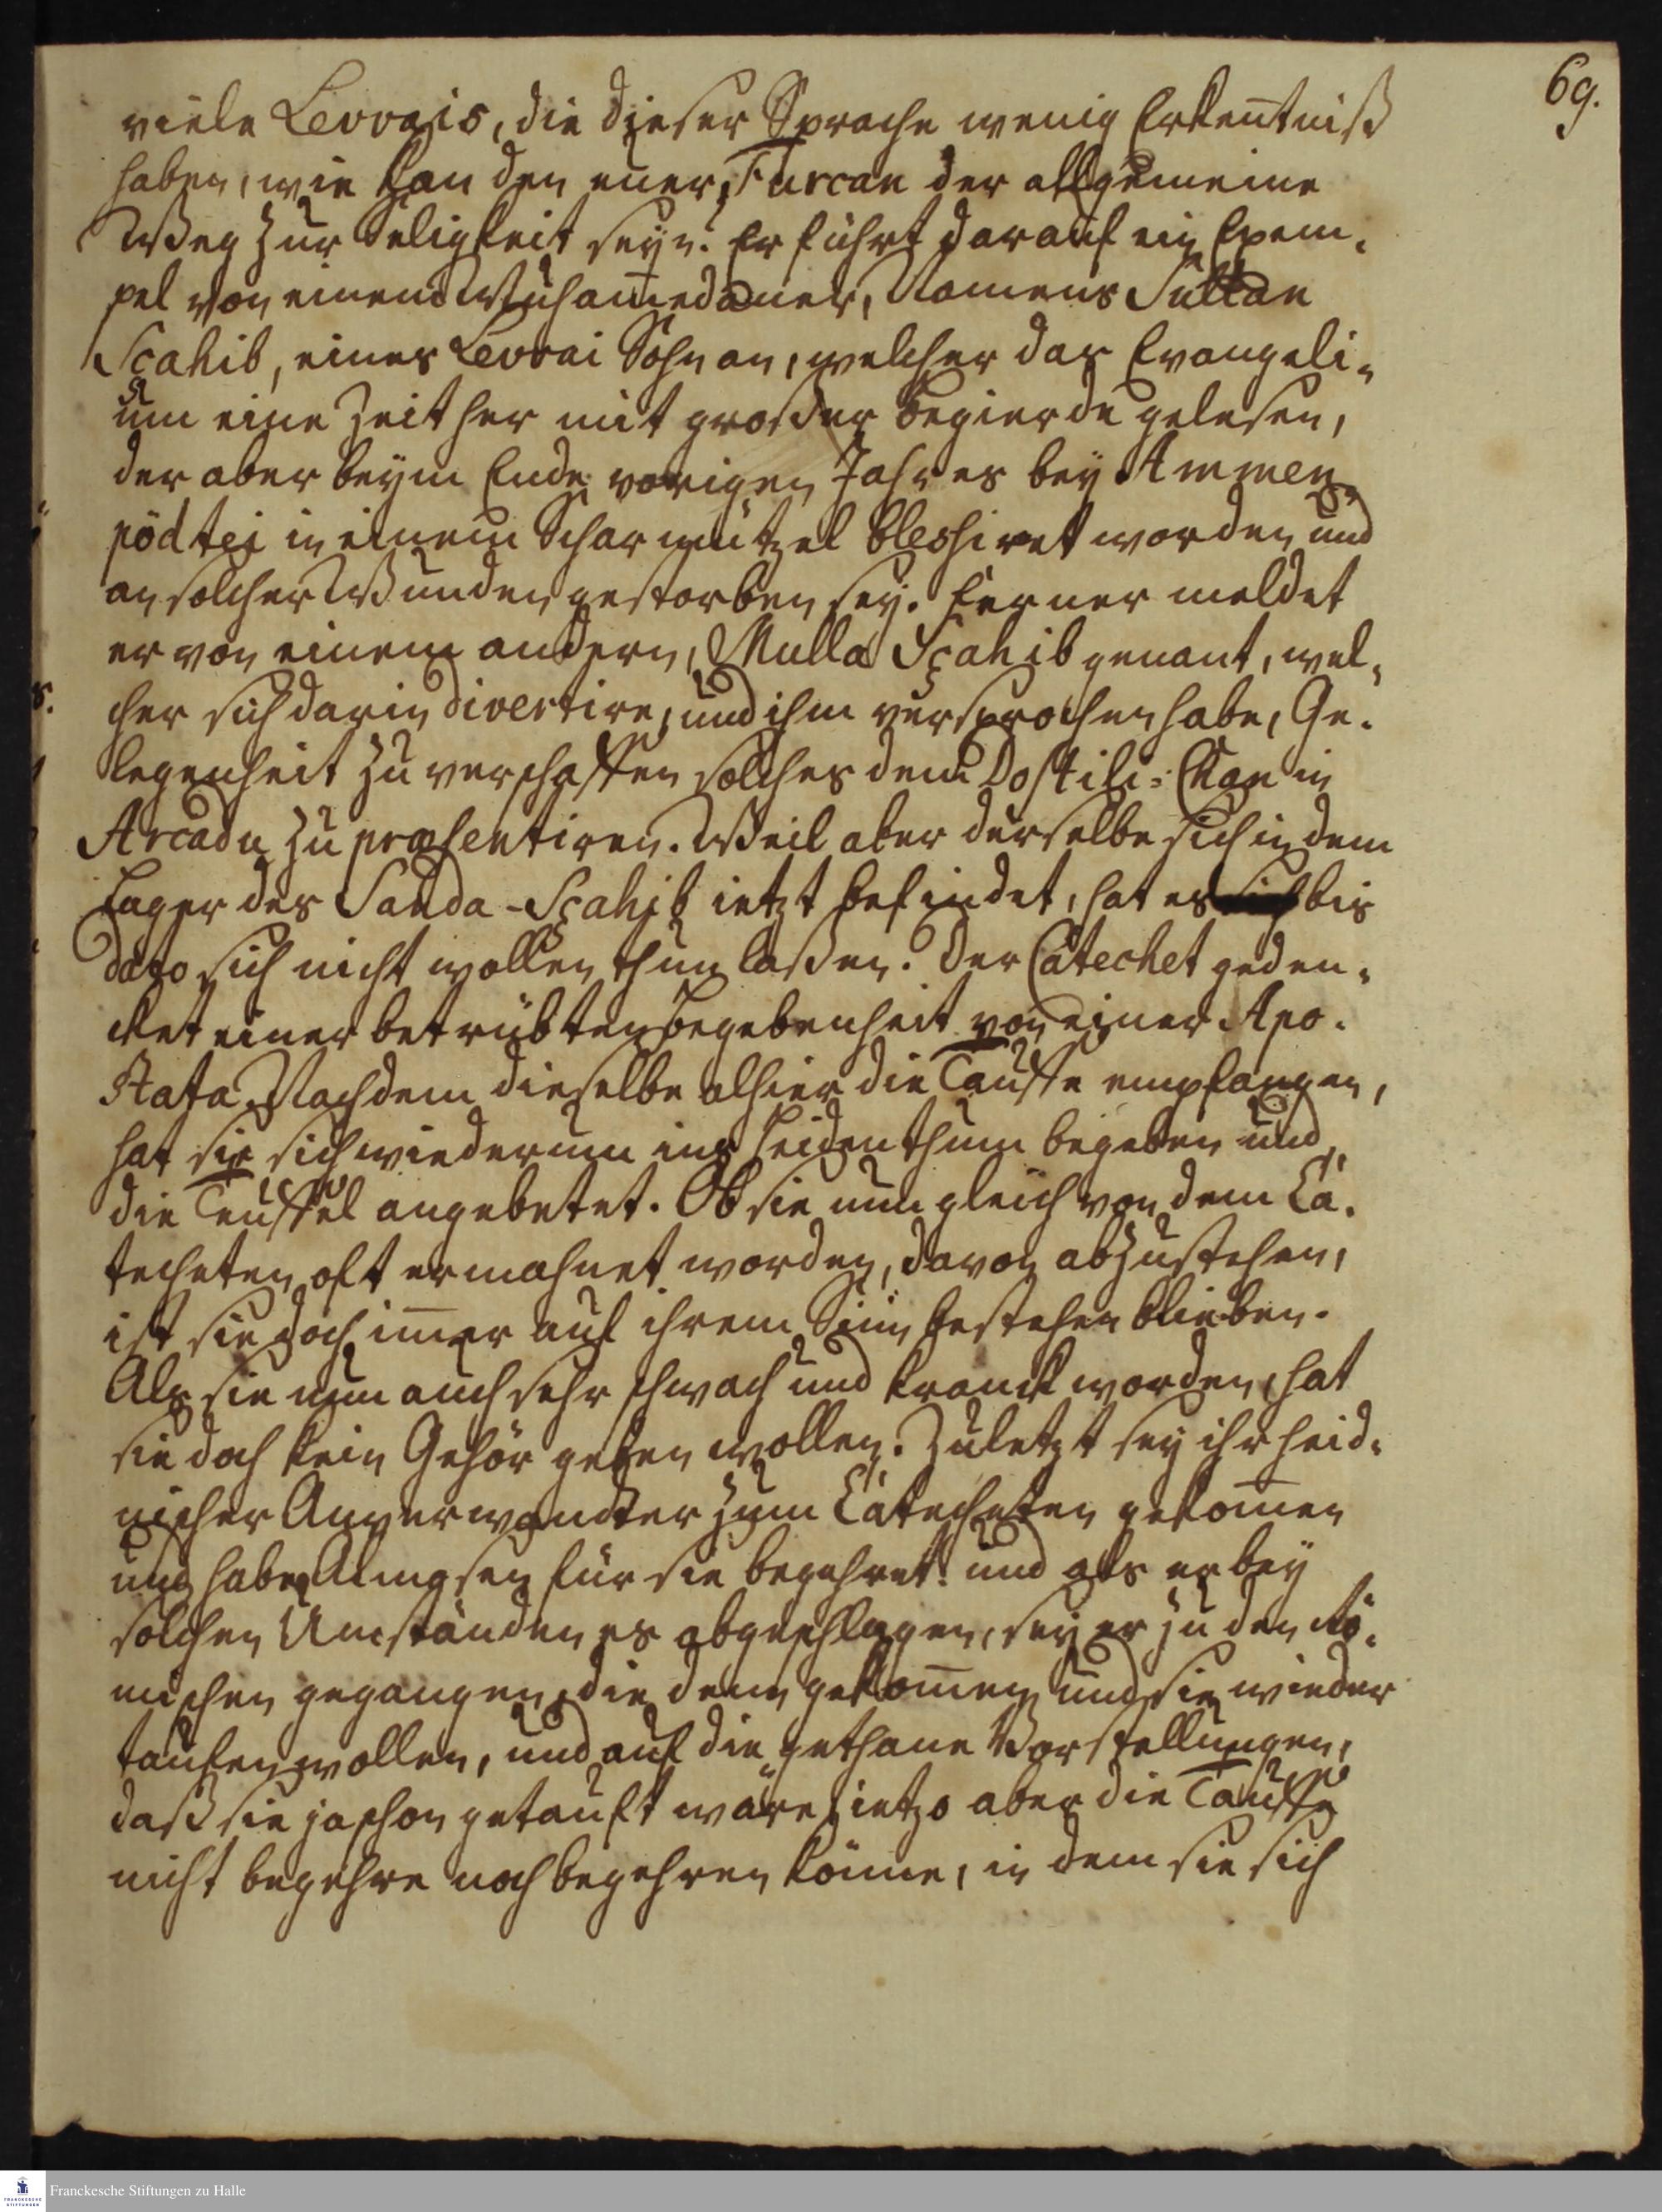 69.
viele Levvais, die dieser Sprache wenig Erkentniß
haben, wie kan den euer Furcan der allgemeine
Weg zur Seligkeit seyn? Er führt darauf ein Exem-
pel von einem Muhamedaner, Namens Sultan
Scahib, eines Levvai Sohn an, welcher das Evangeli-
um eine Zeit her mit großer Begierde gelesen,
der aber beym Ende vorigen Jahres bey Ammen-
pödtei in einem Scharmützel blessiret worden und
an solcher Wunden gestorben sey. Ferner meldet
er von einem andern, Mulla Scahib genant, wel-
cher sich darin divertire, und ihm versprochen habe, Ge-
legenheit zu verschaffen solches dem Dostili-Chan in
Arcadu zu præsentiren. Weil aber derselbe sich in dem
Lager des Sanda-Scahib ietzt befindet, hat es sich bis
dato sich nicht wollen thun laßen. Der Catechet geden-
cket einer betrübten Begebenheit von einer Apo-
stata. Nachdem dieselbe alhier die Tauffe empfangen,
hat sie sich wiederum ins Heidenthum begeben und
die Teuffel angebetet. Ob sie nun gleich von dem Ca-
techeten oft ermahnet worden, davon abzustehen,
ist sie doch imer auf ihrem Sinn bestehen blieben.
Als sie nun auch sehr schwach und kranck worden, hat
sie doch kein Gehör geben wollen. Zuletzt sey ihr heid-
nischer Anverwandter zum Catecheten gekomen
und habe Almosen für sie begehret: und als er bey
solchen Umständen es abgeschlagen, sey er zu den Rö-
mischen gegangen, die den gekomen und sie wieder
taufen wollen, und auf die gethane Vorstellungen,
daß sie ja schon getauft wäre, ietzo aber die Tauffe
nicht begehre noch begehren könne, in dem sie sich
Franckesche Stiftungen zu Halle